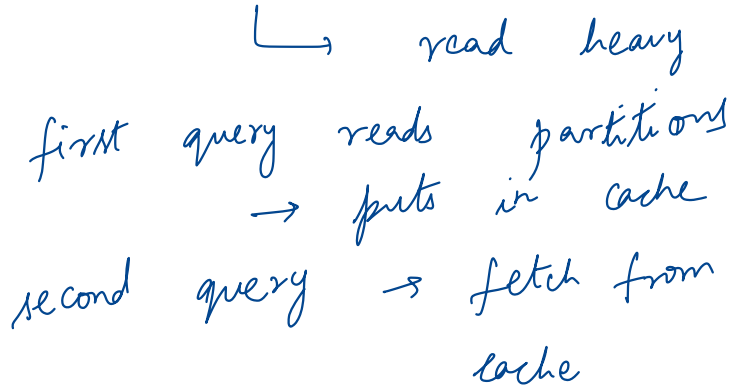 ↳ read heavy
first query reads partitions
→ puts in cache
second query → fetch from
cache